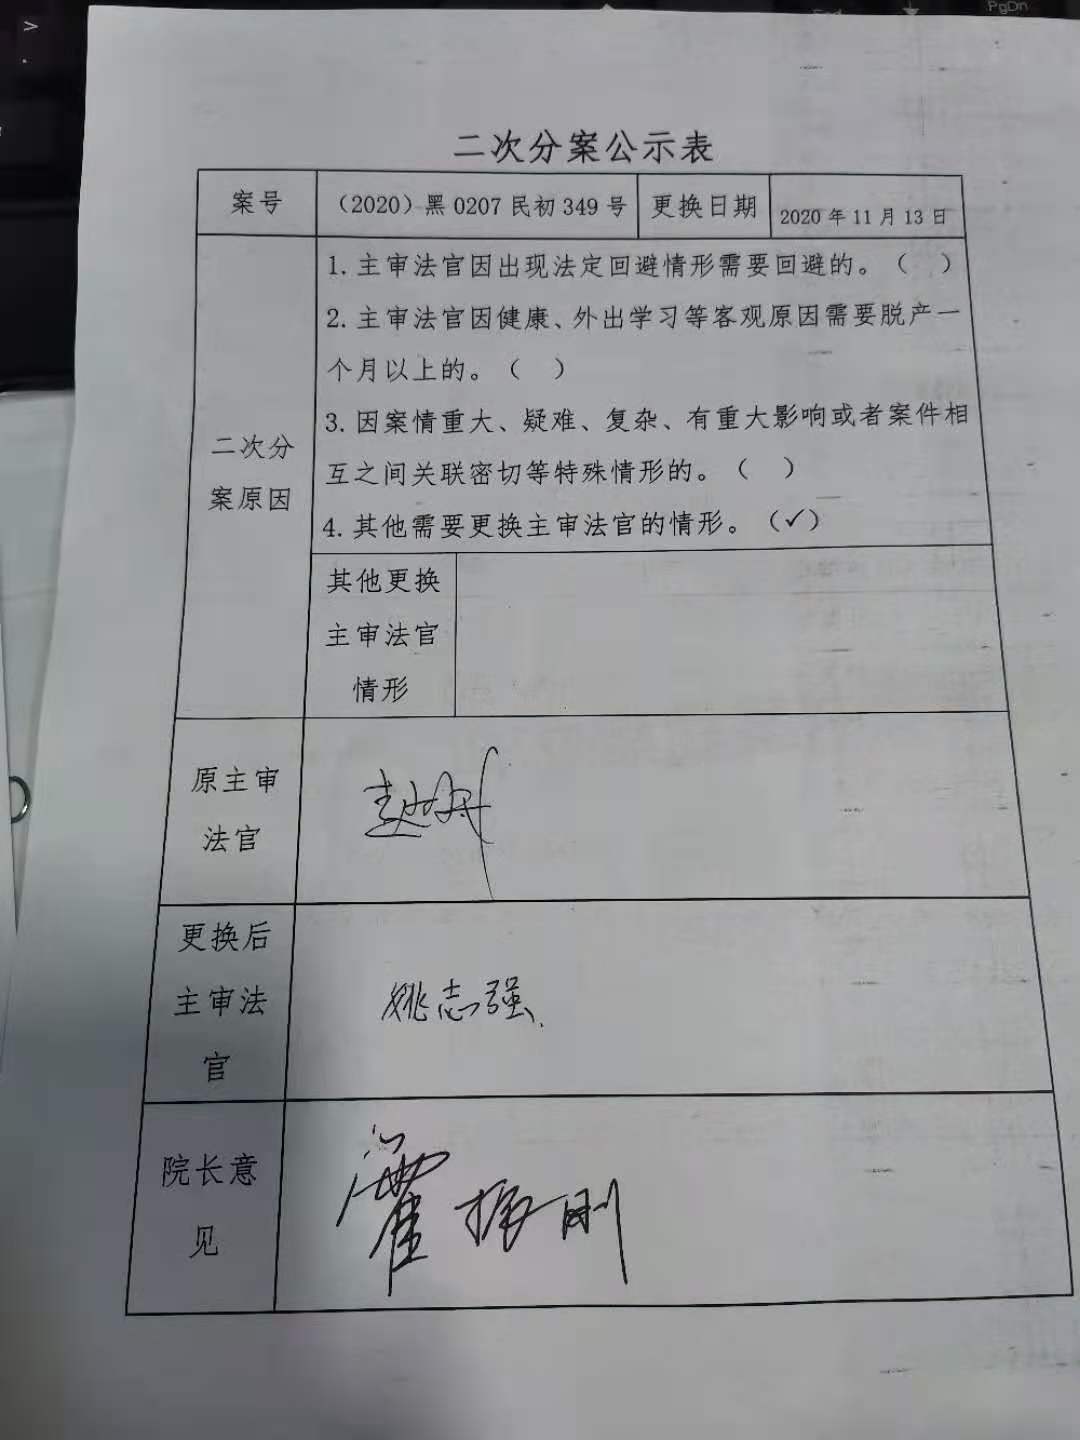 PgDn
二次分案公示表
案号
（2020）黑 0207 民初 349 号
更换日期
2020 年 11 月 13 日
二次分
案原因
1. 主审法官因出现法定回避情形需要回避的。（ ）
2. 主审法官因健康、外出学习等客观原因需要脱产一
个月以上的。（ ）
3. 因案情重大、疑难、复杂、有重大影响或者案件相
互之间关联密切等特殊情形的。（ ）
4. 其他需要更换主审法官的情形。（✓）
其他更换
主审法官
情形
原主审
法官
更换后
主审法
官
姚志强
院长意
见
振刚